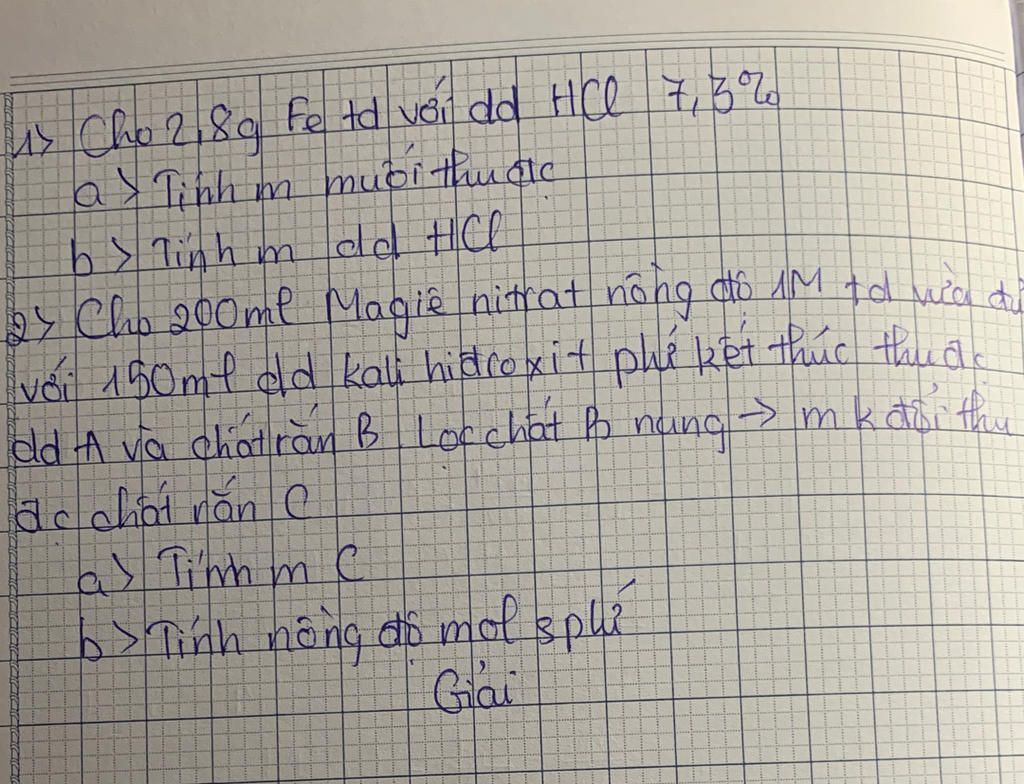 1> Cho 2,8g Fe td với dd HCl 7,3%
a> Tính m muối thu đc
b> Tính m dd HCl
2> Cho 200ml Magiê nitrat nồng độ 1M td vừa đủ
với 150ml dd kali hiđroxit phứ kết thúc thu đc
dd A và chất rắn B Lọc chất B nung → m k đổi thu
đc chất rắn C
a> Tính m C
b> Tính nồng độ mol s phứ
Giải